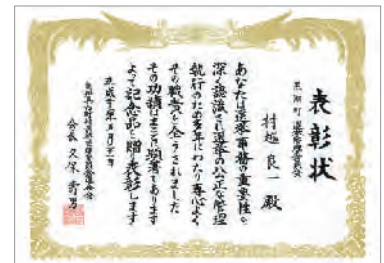 表彰状
選挙管理委員会
村越良一殿
あなたは選挙事務の重要性を
深く認識され選挙の公正な管理
執行のため多年にわたり専心よく
その職責を全うされました
その功績はまことに顕著であります
よって記念品を贈り表彰します
平成十年五月二十一日
会長 久保秀男